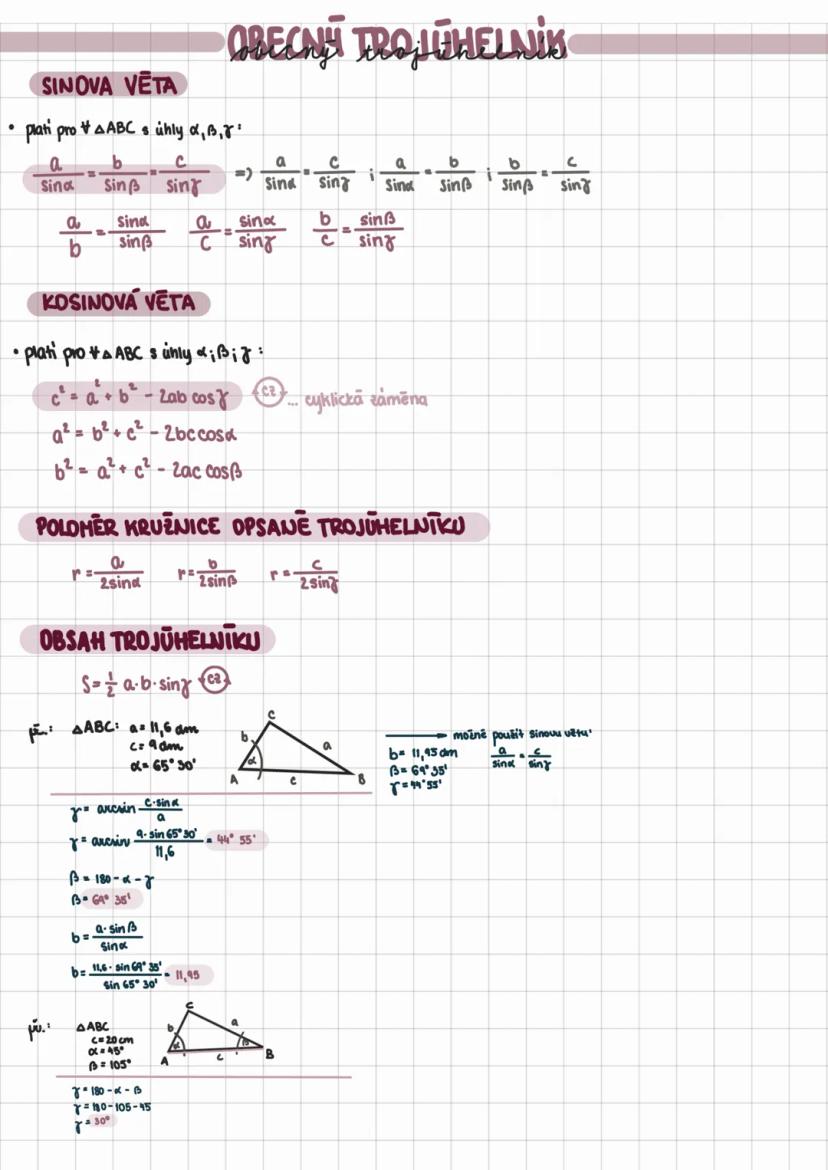 OBECNÝ TROJÚHELNÍK
obecný trojúhelník
SINOVA VĚTA
• platí pro ∀ △ABC s úhly α,β,γ:
a/sinα = b/sinβ = c/sinγ => a/sinα = c/sinγ ; a/sinα = b/sinβ ; b/sinβ = c/sinγ
a/b = sinα/sinβ a/c = sinα/sinγ b/c = sinβ/sinγ
KOSINOVÁ VĚTA
• platí pro ∀ △ABC s úhly α;β;γ:
c² = a² + b² - 2ab cosγ CZ ... cyklická záměna
a² = b² + c² - 2bc cosα
b² = a² + c² - 2ac cosβ
POLOMĚR KRUŽNICE OPSANÉ TROJÚHELNÍKU
r = a/2sinα r = b/2sinβ r = c/2sinγ
OBSAH TROJÚHELNÍKU
S = 1/2 a·b·sinγ CZ
př.: △ABC: a = 11,6 dm
c = 9 dm
α = 65° 30'
C
b
a
α
A
c
B
možné použít sinovu větu'
b = 11,95 dm a/sinα = c/sinγ
β = 69° 35'
γ = 44° 55'
γ = arcsin c·sinα/a
γ = arcsin 9·sin 65° 30'/11,6 = 44° 55'
β = 180 - α - γ
β = 69° 35'
b = a·sinβ/sinα
b = 11,6·sin 69° 35'/sin 65° 30' = 11,95
př.: △ABC
c = 20 cm
α = 45°
β = 105°
C
b
a
α
β
A
c
B
γ = 180 - α - β
γ = 180 - 105 - 45
γ = 30°